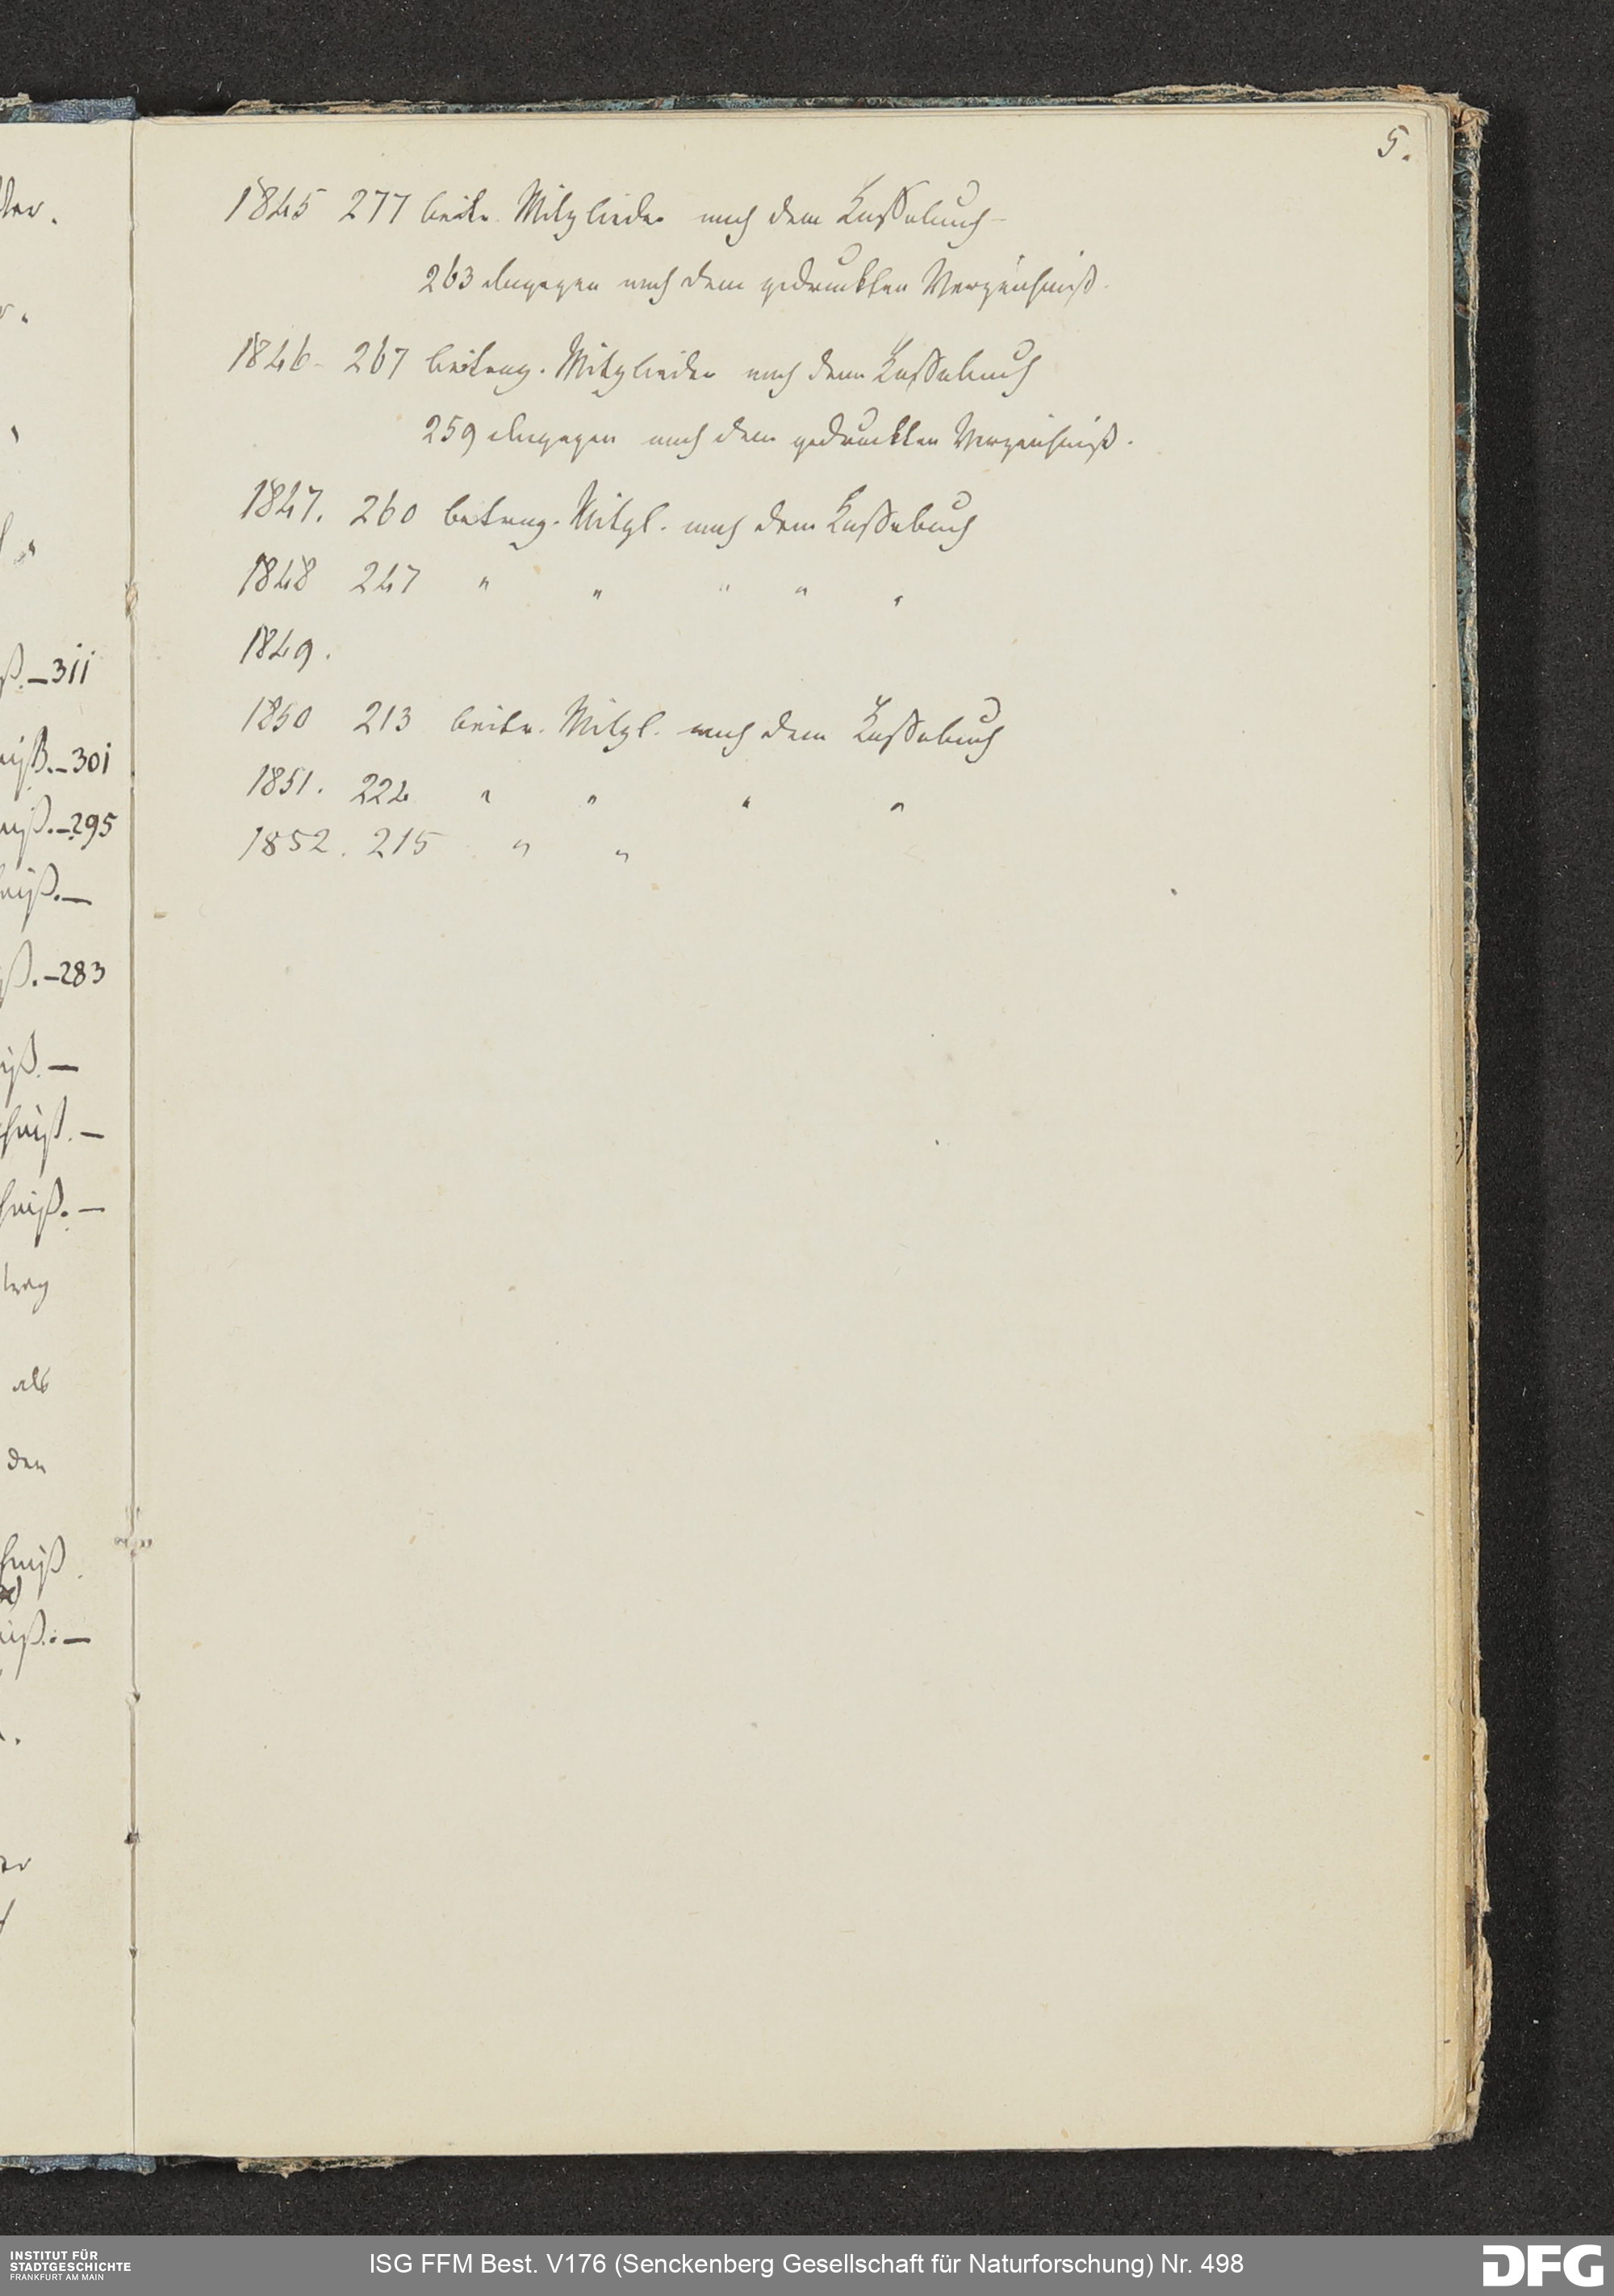 5.
1845 277 beitr. Mitglieder nach dem Kassabuch
263 dagegen nach dem gedruckten Verzeichniß.
1846 267 beitrag. Mitglieder nach dem Kassabuch
259 dagegen nach dem gedruckten Verzeichniß.
1847. 260 beitrag. Mitgl. nach dem Kassabuch
1848 247 " " " " "
1849.
1850 213 beitr. Mitgl. nach dem Kassabuch
1851. 224 " " " "
1852. 215 " "
ß.–311
niß.–301
niß.–295
niß.–
ß.–283
iß.–
hniß.–
hniß.–
trag
als
den
hniß
niß.–
INSTITUT FÜR
STADTGESCHICHTE
FRANKFURT AM MAIN
ISG FFM Best. V176 (Senckenberg Gesellschaft für Naturforschung) Nr. 498
DFG